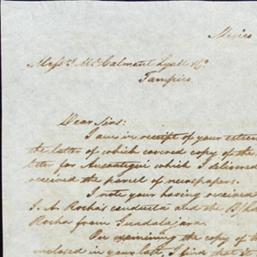 Mexico
Mess.rs McCalmont Lyall & Co
Tampico
Dear Sirs:
I am in receipt of your esteem
the latter of which covered copy of the
letter for Amezitegui which I delivered
received the parcel of newspapers.
I note your having received
J. A. Rocha's and the B/L
Rocha from Guadalajara.
On examining the copy of th
enclosed in your last, I find that